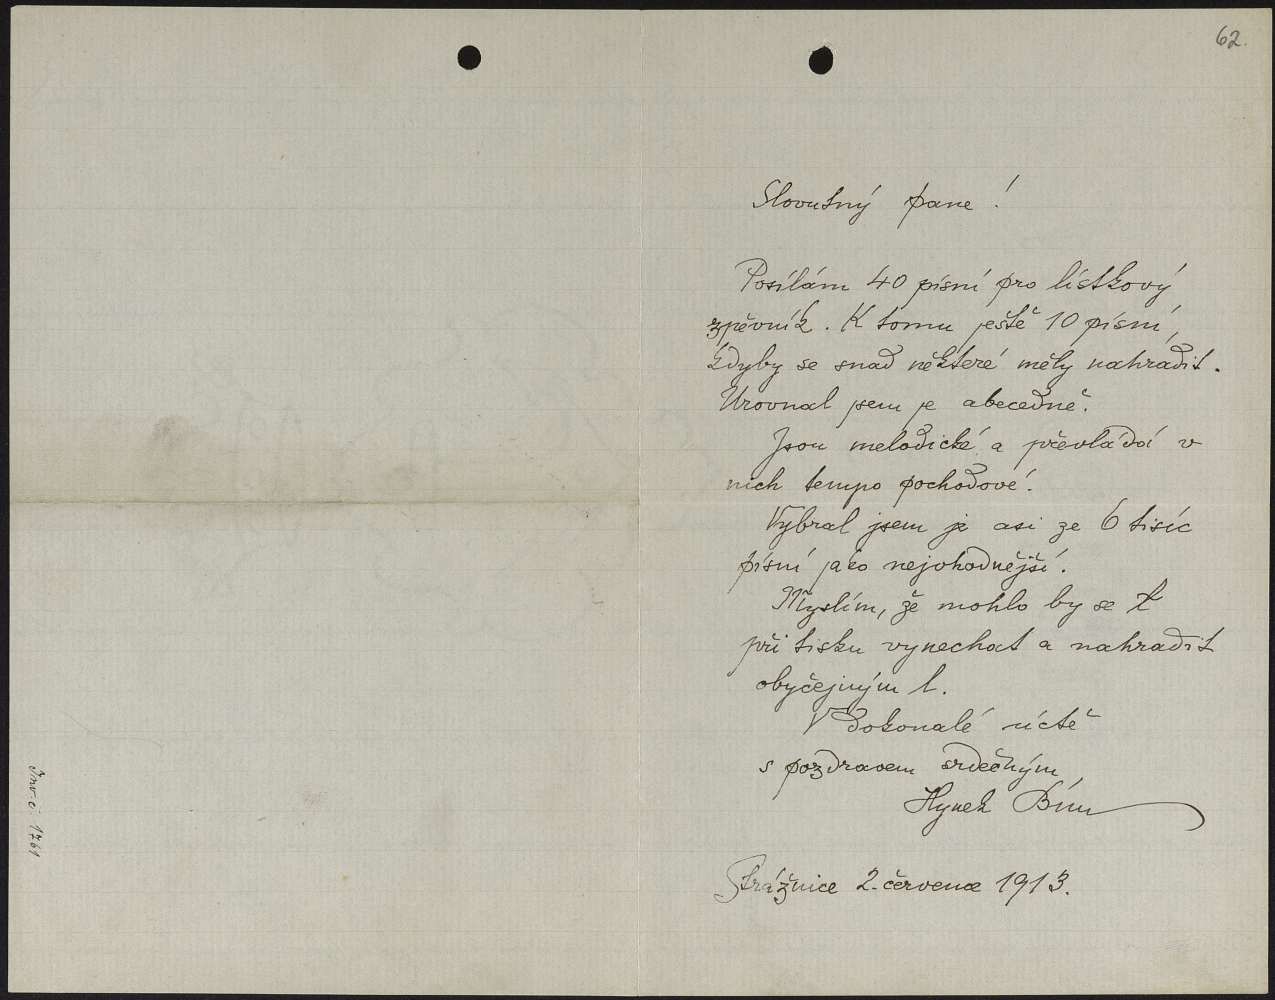 62.
Slovutný pane!
Posílám 40 písní pro lístkový
zpěvník. K tomu ještě 10 písní,
kdyby se snad některé měly nahradit.
Urovnal jsem je abecedně.
Jsou melodické a převládá v
nich tempo pochodové.
Vybral jsem je asi ze 6 tisíc
písní jako nejvhodnější.
Myslím, že mohlo by se ł
při tisku vynechat a nahradit
obyčejným l.
V dokonalé úctě
s pozdravem srdečným
Hynek Bím
Strážnice 2. července 1913.
Inv. č. 1761